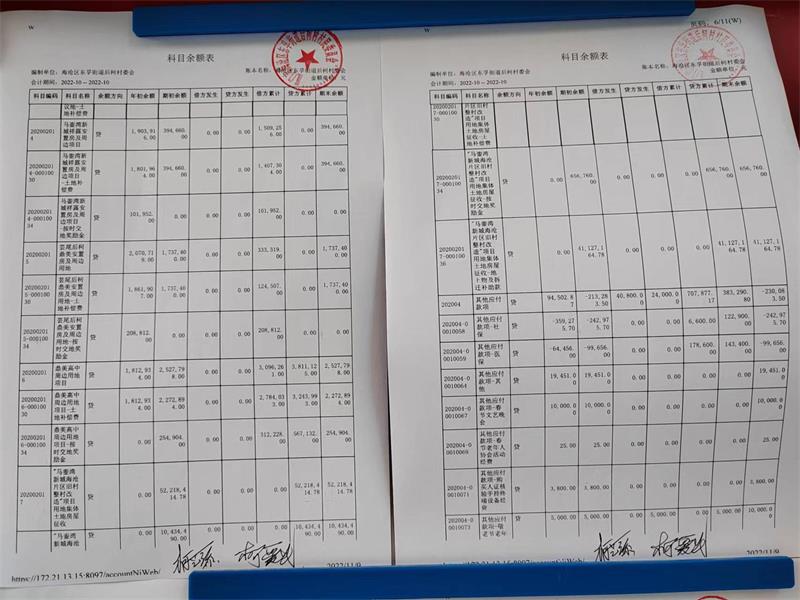 W
科目余额表
编制单位：海沧区东孚街道后柯村委会
账本名称：海沧区东孚街道后柯村委会
会计期间：2022-10--2022-10
金额单位：元
科目编码 科目名称 余额方向 年初余额 期初余额 借方发生 贷方发生 借方累计 贷方累计 期末余额
议地-土
地补偿费
20200201
4
马銮湾新
城祥露安
置房及周
边项目
贷 1,903,9
16.00 394,660.
00 0.00 0.00 1,509,25
6.00 0.00 394,660.
00
20200201
4-0001000
30
马銮湾新
城祥露安
置房及周
边项目
-土地补
偿费
贷 1,801,9
64.00 394,660.
00 0.00 0.00 1,407,30
4.00 0.00 394,660.
00
20200201
4-0001000
34
马銮湾新
城祥露安
置房及周
边项目
-按时交
地奖励金
贷 101,952
.00 0.00 0.00 0.00 101,952.
00 0.00 0.00
20200201
5
芸尾后柯
鼎美安置
房及周边
用地
贷 2,070,7
19.00 1,737,40
0.00 0.00 0.00 333,319.
00 0.00 1,737,40
0.00
20200201
5-0001000
30
芸尾后柯
鼎美安置
房及周边
用地-土
地补偿费
贷 1,861,9
07.00 1,737,40
0.00 0.00 0.00 124,507.
00 0.00 1,737,40
0.00
20200201
5-0001000
34
芸尾后柯
鼎美安置
房及周边
用地-按
时交地奖
励金
贷 208,812
.00 0.00 0.00 0.00 208,812.
00 0.00 0.00
20200201
6
鼎美高中
周边用地
项目
贷 1,812,9
34.00 2,527,79
8.00 0.00 0.00 3,096,26
1.00 3,811,12
5.00 2,527,79
8.00
20200201
6-0001000
30
鼎美高中
周边用地
项目-土
地补偿费
贷 1,812,9
34.00 2,272,89
4.00 0.00 0.00 2,784,03
3.00 3,243,99
3.00 2,272,89
4.00
20200201
6-0001000
34
鼎美高中
周边用地
项目-按
时交地奖
励金
贷 0.00 254,904.
00 0.00 0.00 312,228.
00 567,132.
00 254,904.
00
20200201
7
"马銮湾
新城海沧
片区旧村
整村改
造"项目
用地集体
土地房屋
征收
贷 0.00 52,218,4
14.78 0.00 0.00 0.00 52,218,4
14.78 52,218,4
14.78
"马銮湾
新城海沧
0.00 10,434,4
90.00 0.00 0.00 0.00 10,434,4
90.00 10,434,4
90.00
https://172.21.13.15:8097/accountNiWeb/
2022/11/9
W
页码：6/11(W)
科目余额表
编制单位：海沧区东孚街道后柯村委会
账本名称：海沧区东孚街道后柯村委会
会计期间：2022-10--2022-10
金额单位：元
科目编码 科目名称 余额方向 年初余额 期初余额 借方发生 贷方发生 借方累计 贷方累计 期末余额
20200201
7-0001000
30
片区旧村
整村改
造"项目
用地集体
土地房屋
征收-土
地补偿费
20200201
7-0001000
34
"马銮湾
新城海沧
片区旧村
整村改
造"项目
用地集体
土地房屋
征收-按
时交地奖
励金
贷 0.00 656,760.
00 0.00 0.00 0.00 656,760.
00 656,760.
00
20200201
7-0001000
36
"马銮湾
新城海沧
片区旧村
整村改
造"项目
用地集体
土地房屋
征收-地
上物及拆
迁补助款
贷 0.00 41,127,1
64.78 0.00 0.00 0.00 41,127,1
64.78 41,127,1
64.78
202004 其他应付
款项 贷 94,502.8
7 -213,28
3.50 40,800.0
0 24,000.0
0 707,877.
17 383,290.
80 -230,08
3.50
202004-00
0010058
其他应付
款项-社
保
贷 -359,27
5.70 -242,97
5.70 0.00 0.00 6,600.00 122,900.
00 -242,97
5.70
202004-00
0010059
其他应付
款项-医
保
贷 -64,456.
00 -99,656.
00 0.00 0.00 178,600.
00 143,400.
00 -99,656.
00
202004-00
0010064
其他应付
款项-其
他
贷 19,451.0
0 19,451.0
0 0.00 0.00 0.00 0.00 19,451.0
0
202004-00
0010067
其他应付
款项-春
节文艺晚
会
贷 10,000.0
0 10,000.0
0 0.00 0.00 0.00 0.00 10,000.0
0
202004-00
0010069
其他应付
款项-春
节老年人
协会活动
经费
贷 25.00 25.00 0.00 0.00 0.00 0.00 25.00
202004-00
0010071
其他应付
款项-购
买人证核
验手持终
端设备经
费
贷 3,800.00 3,800.00 0.00 0.00 0.00 0.00 3,800.00
202004-00
0010073
其他应付
款项-敬
老节老年
贷 5,000.00 5,000.00 0.00 5,000.00 0.00 5,000.00 10,000.0
0
2022/11/9